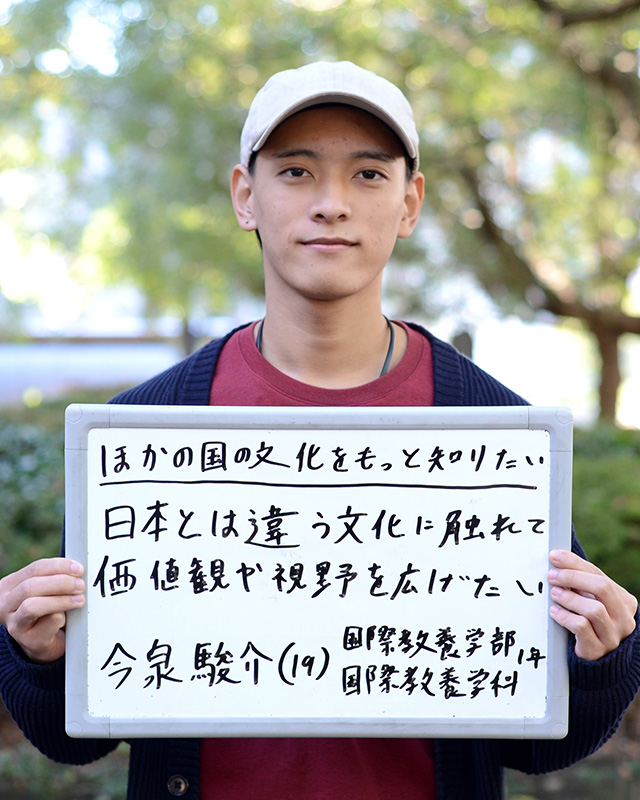 ほかの国の文化をもっと知りたい
日本とは違う文化に触れて
価値観や視野を広げたい
今泉駿介(19) 国際教養学部1年
国際教養学科